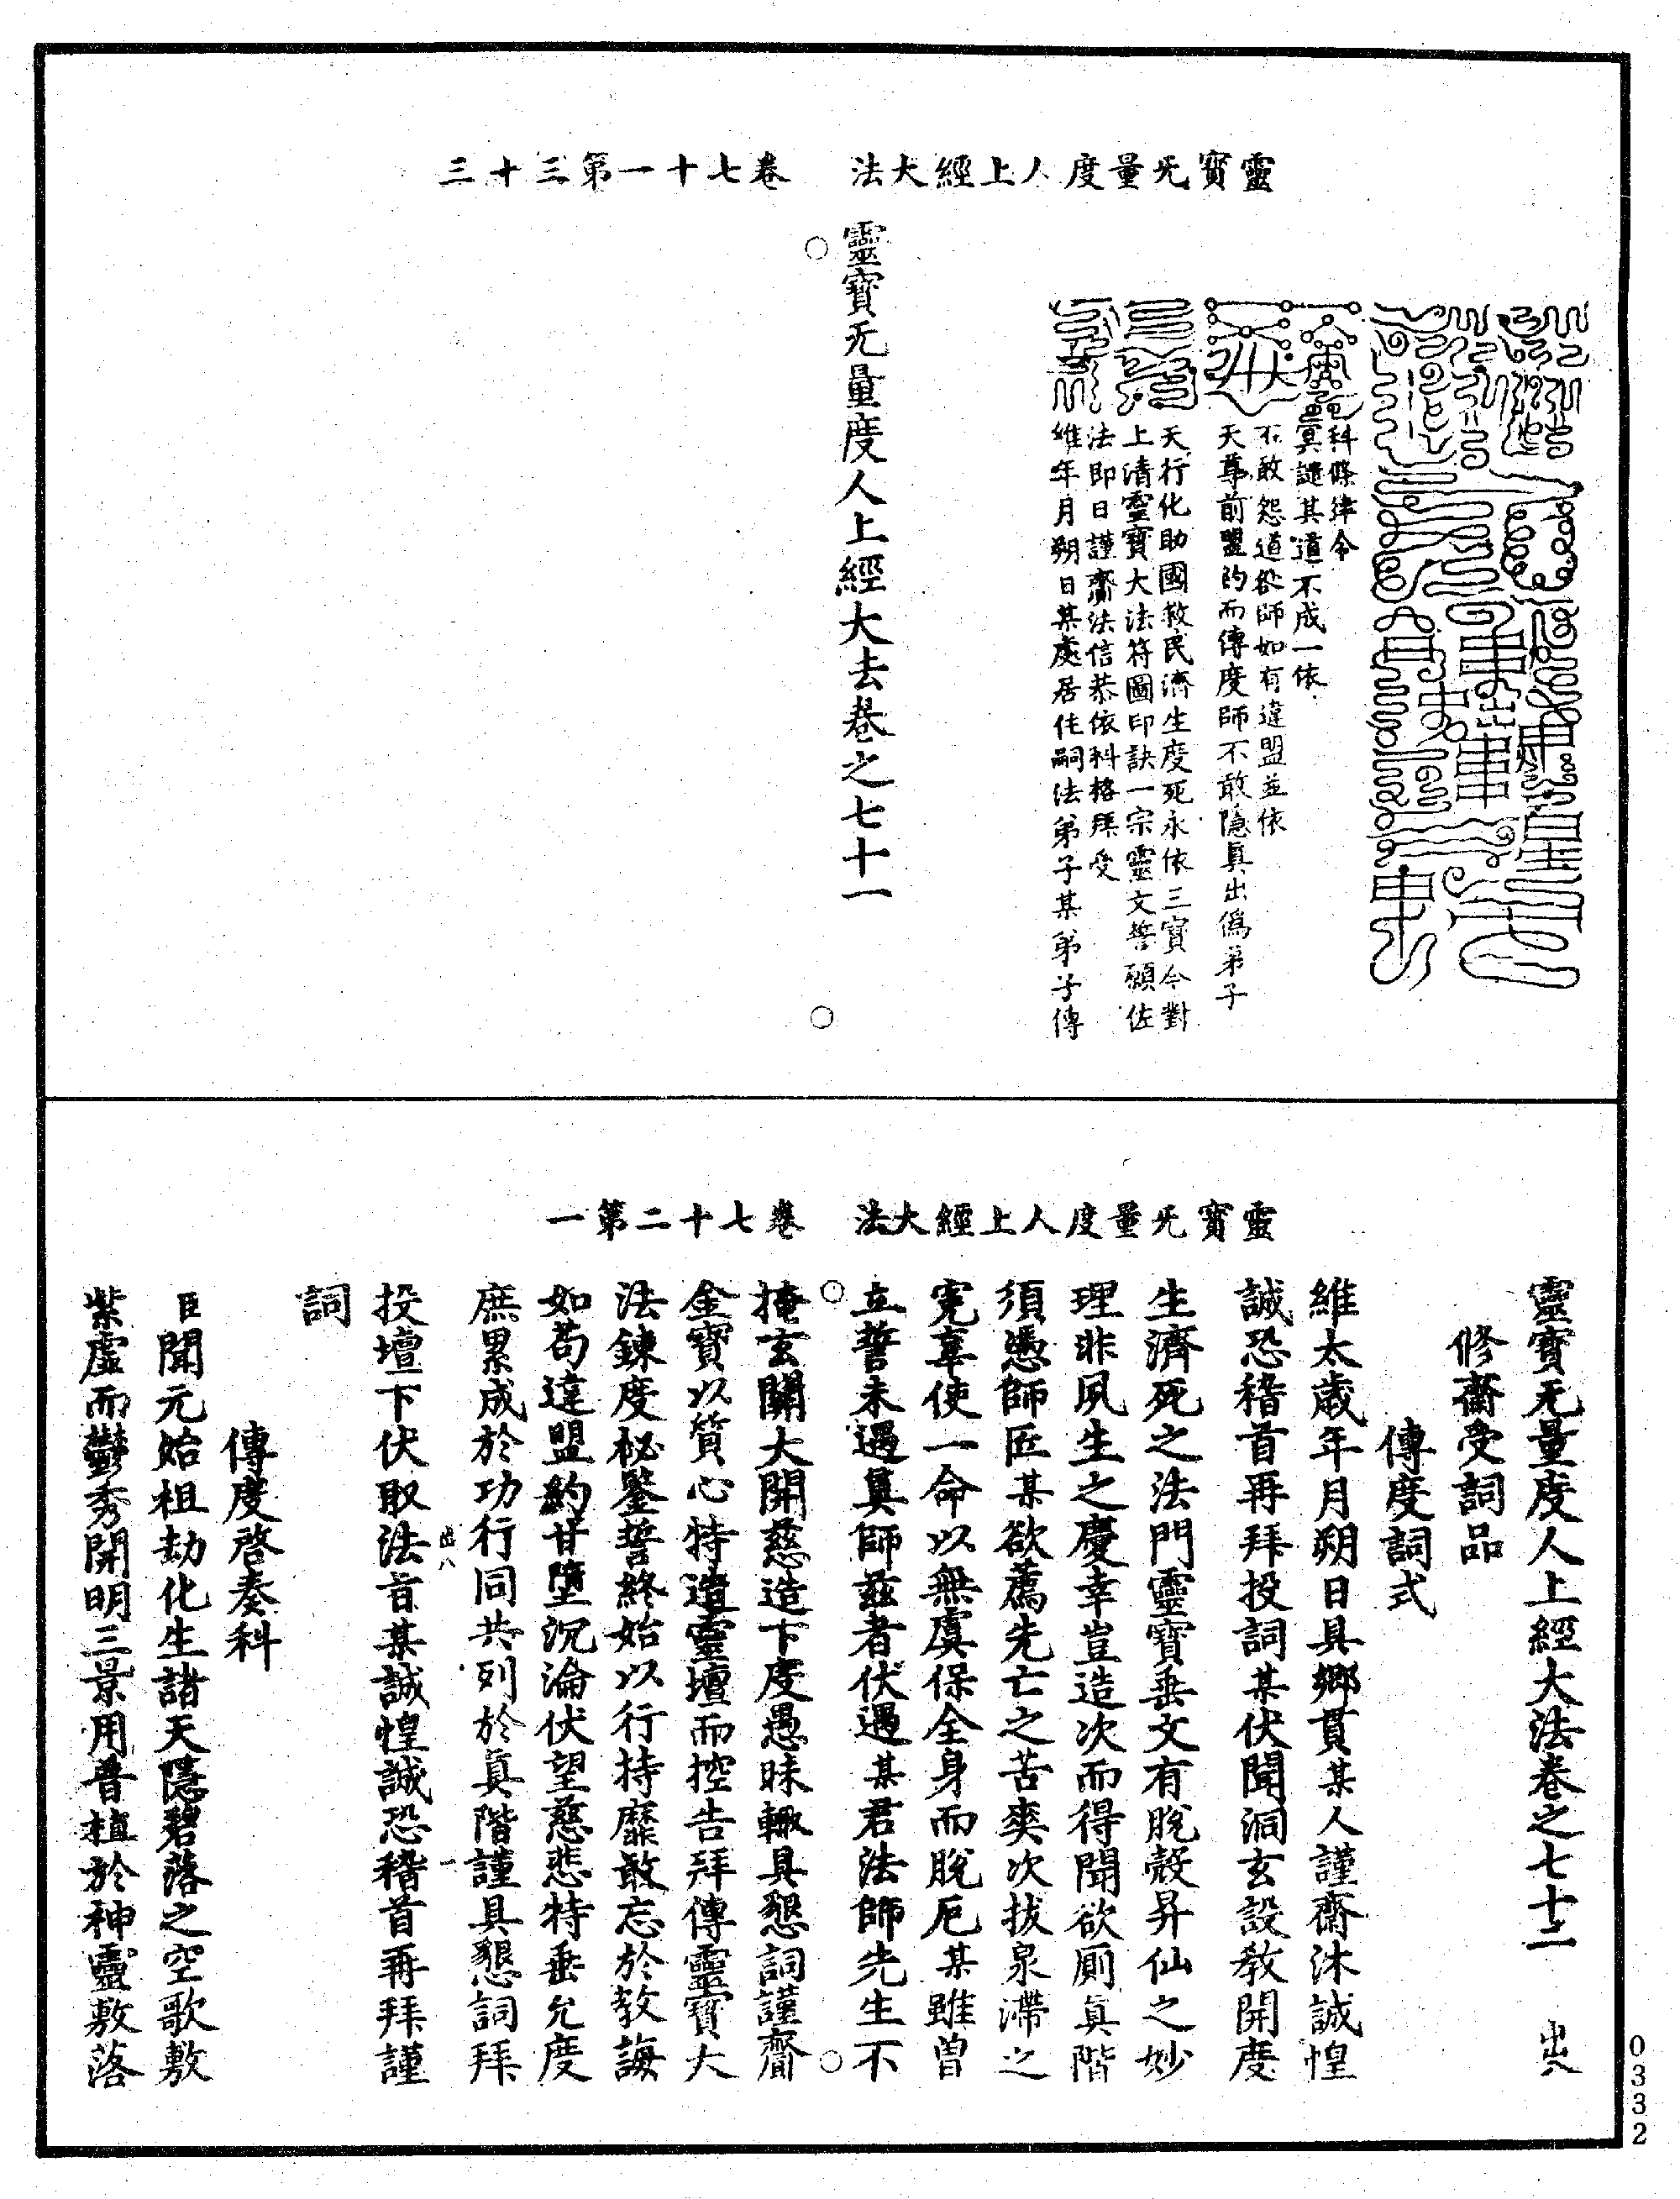 靈寶无量度人上經大法　卷七十一第三十三
維年月朔日某處居住嗣法弟子某弟子傳
法即日謹齋法信恭依科格拜受
上清靈寶大法符圖印訣一宗靈文誓願佐
天行化助國救民濟生度死永依三寶今對
天尊前盟約而傳度師不敢隱真出偽弟子
不敢怨道咎師如有違盟並依
冥譴其道不成一依
科條律令
靈寶无量度人上經大法卷之七十一
靈寶无量度人上經大法　卷七十二第一
靈寶无量度人上經大法卷之七十二　出八
修齋受詞品
傳度詞式
維太歲年月朔日具鄉貫某人謹齋沐誠惶
誠恐稽首再拜投詞某伏聞洞玄設教開度
生濟死之法門靈寶垂文有脫殼昇仙之妙
理非夙生之慶幸豈造次而得聞欲廁真階
須憑師匠某欲薦先亡之苦爽次拔泉滯之
冤辜使一命以無虞保全身而脫厄某雖曾
立誓未遇真師茲者伏遇某君法師先生不
掩玄關大開慈造下度愚昧輒具懇詞謹齎
金寶以質心特造靈壇而控告拜傳靈寶大
法鍊度秘鑒誓終始以行持靡敢忘於教誨
如苟違盟約甘墮沉淪伏望慈悲特垂允度
庶累成於功行同共列於真階謹具懇詞拜
出八　一
投壇下伏取法旨某誠惶誠恐稽首再拜謹
詞
傳度啓奏科
臣聞元始祖劫化生諸天隱碧落之空歌敷
紫虛而鬱秀開明三景用普植於神靈敷落
0332